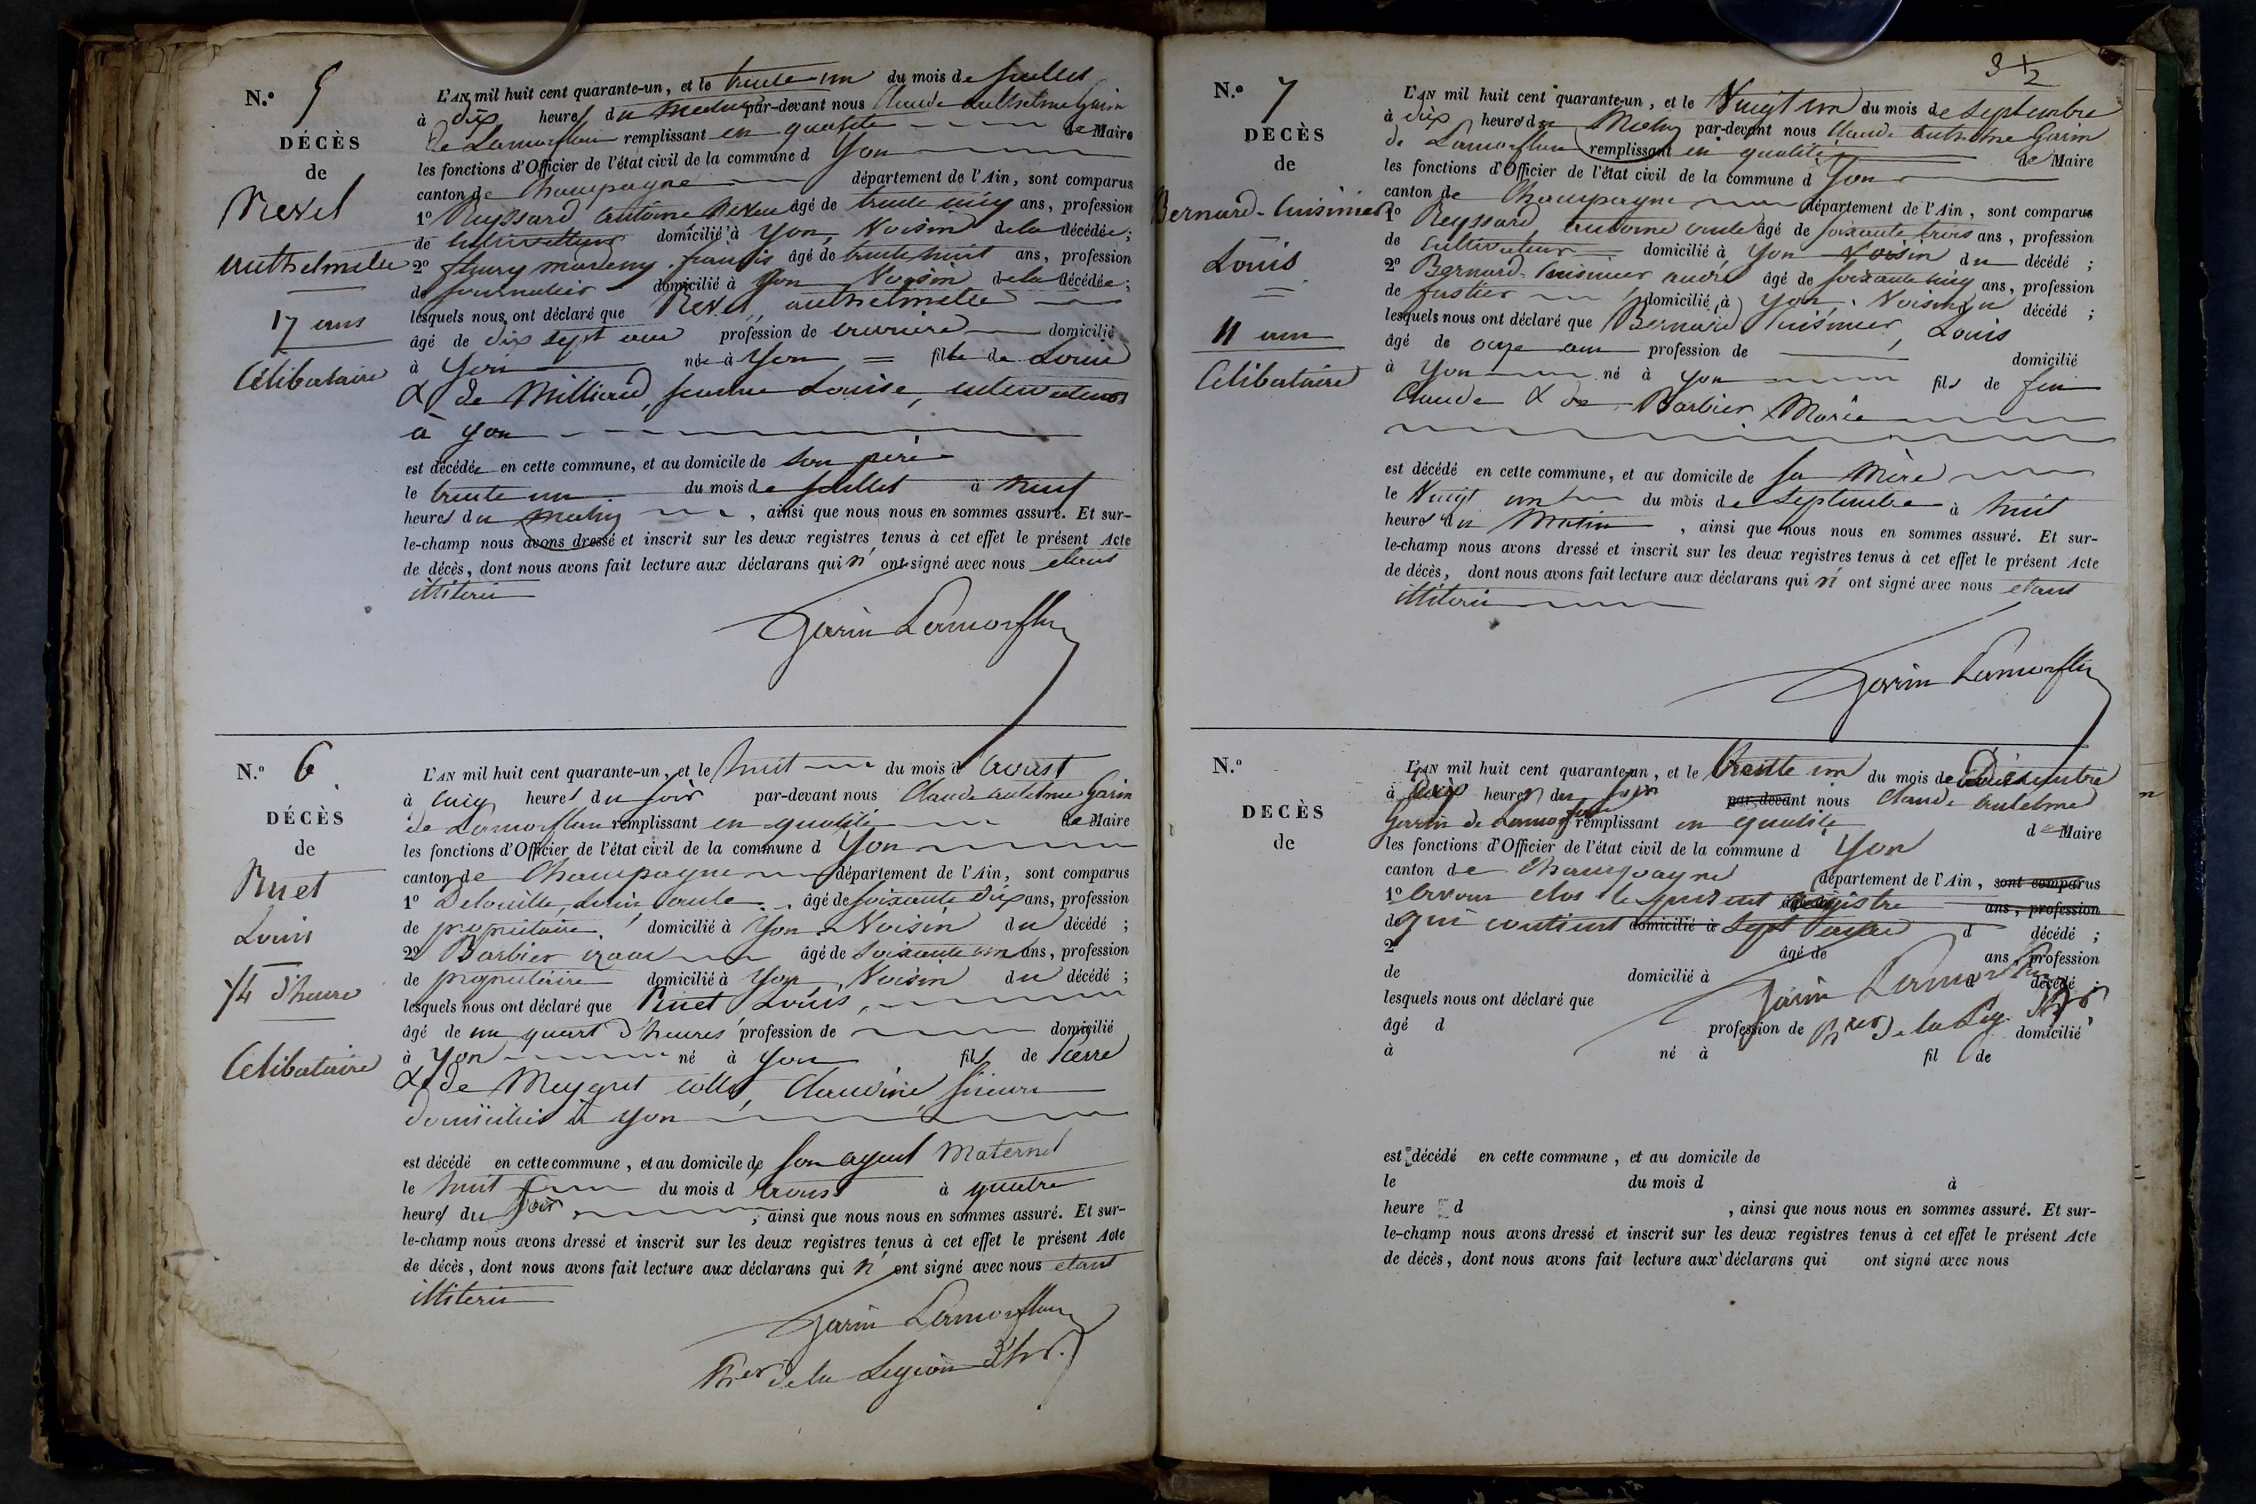 N.º 5
DÉCÈS
de
Revel
anthelmette
17 ans
Célibataire
L'AN mil huit cent quarante-un, et le trente un du mois de Juillet
à dix heures du matin par-devant nous Claude anthelme Garin
de Lamorflan remplissant en qualité de Maire
les fonctions d'Officier de l'état civil de la commune d Yon
canton de Champagne département de l'Ain, sont comparus
1º Reyssard antoine âgé de trente cinq ans, profession
de cultivateur domicilié à Yon, Voisin de la décédée;
2º fleury françois âgé de trente huit ans, profession
de journalier domicilié à Yon Voisin de la décédée;
lesquels nous ont déclaré que Revel, anthelmette
âgé de dix sept ans profession de ouvrière domicilié
à Yon née à Yon fille de Louis
& de Milliand, femme Louise, cultivateurs
à Yon
est décédée en cette commune, et au domicile de son père
le trente un du mois de Juillet à neuf
heures du matin, ainsi que nous nous en sommes assuré. Et sur-
le-champ nous avons dressé et inscrit sur les deux registres tenus à cet effet le présent Acte
de décès, dont nous avons fait lecture aux déclarans qui n' ont signé avec nous etant
illiteris
Garin Lamorflan
N.º 6
DÉCÈS
de
Ruet
Louis
1/4 d'heure
Célibataire
L'AN mil huit cent quarante-un, et le huit du mois d'aoust
à cinq heures du soir par-devant nous Claude antelme Garin
de Lamorflan remplissant en qualité de Maire
les fonctions d'Officier de l'état civil de la commune d Yon
canton de Champagne département de l'Ain, sont comparus
1º âgé de soixante dix ans, profession
de propriétaire domicilié à Yon Voisin du décédé;
2º Barbier âgé de soixante un ans, profession
de propriétaire domicilié à Yon, Voisin du décédé;
lesquels nous ont déclaré que Ruet Louis,
âgé de un quart d'heures profession de domicilié
à Yon né à Yon fils de Pierre
& de Meygret Claudine
domiciliés à Yon
est décédé en cette commune, et au domicile de son ayeul Maternel
le huit du mois d aoust à quatre
heures du soir, ainsi que nous nous en sommes assuré. Et sur-
le-champ nous avons dressé et inscrit sur les deux registres tenus à cet effet le présent Acte
de décès, dont nous avons fait lecture aux déclarans qui n' ont signé avec nous etant
illiteris
Garin Lamorflan
de la Legion d'hr.
3 1/2
N.º 7
DÉCÈS
de
Bernard-Cuisinier
Louis
11 ans
Célibataire
L'AN mil huit cent quarante-un, et le Vingt un du mois de septembre
à dix heures du Matin par-devant nous Claude anthelme Garin
de Lamorflan remplissant en qualité de Maire
les fonctions d'Officier de l'état civil de la commune d Yon
canton de Champagne département de l'Ain, sont comparus
1º Reyssard, antoine âgé de soixante trois ans, profession
de cultivateur domicilié à Yon Voisin du décédé;
2º Bernard-Cuisinier andré âgé de soixante cinq ans, profession
de fustier domicilié à Yon, Voisin du décédé;
lesquels nous ont déclaré que Bernard Cuisinier, Louis
âgé de onze ans profession de domicilié
à Yon né à Yon fils de feu
Claude & de Barbier Marie
est décédé en cette commune, et au domicile de sa Mère
le Vingt un du mois de septembre à huit
heures du Matin, ainsi que nous nous en sommes assuré. Et sur-
le-champ nous avons dressé et inscrit sur les deux registres tenus à cet effet le présent Acte
de décès, dont nous avons fait lecture aux déclarans qui n' ont signé avec nous etant
illiteris
Garin Lamorflan
N.º
DÉCÈS
de
L'AN mil huit cent quarante-un, et le trente un du mois de Décembre
à heures du soir par-devant nous Claude antelme
Garin de Lamorflan remplissant en qualité de Maire
les fonctions d'Officier de l'état civil de la commune d Yon
canton de Champagne département de l'Ain, sont comparus
1º avons clos le présent registre ans, profession
de qui contient domicilié à sept d décédé;
2º âgé de ans, profession
de domicilié à décédé;
lesquels nous ont déclaré que Garin Lamorflan
âgé d profession de de la Leg. d'hr domicilié
à né à fil de
est décédé en cette commune, et au domicile de
le du mois d à
heure d, ainsi que nous nous en sommes assuré. Et sur-
le-champ nous avons dressé et inscrit sur les deux registres tenus à cet effet le présent Acte
de décès, dont nous avons fait lecture aux déclarans qui ont signé avec nous